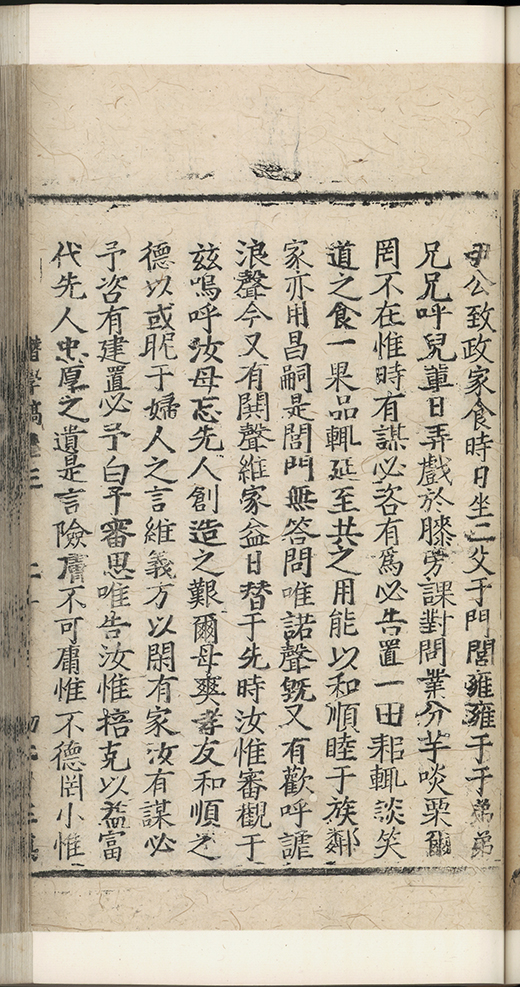 尹公致政家食時日坐二父于門閭雍雍于于弟弟
兄兄呼兒輩日弄戲於膝旁課對問業分芋啖栗
罔不在惟時有謀必咨有爲必告置一田耜輒談笑
道之食一果品輒延至共之用能以和順睦于族鄰
家亦用昌嗣是閭門無答問唯諾聲旣又有歡呼謔
浪聲今又有鬨聲維家益日替于先時汝惟審觀于
玆嗚呼汝母忘先人創造之艱爾母爽孝友和順之
德以或昵于婦人之言維義方以閑有家汝有謀必
予咨有建置必予白予審思唯告汝惟掊克以益富
代先人忠厚之遺是言險膚不可庸惟不德罔小惟